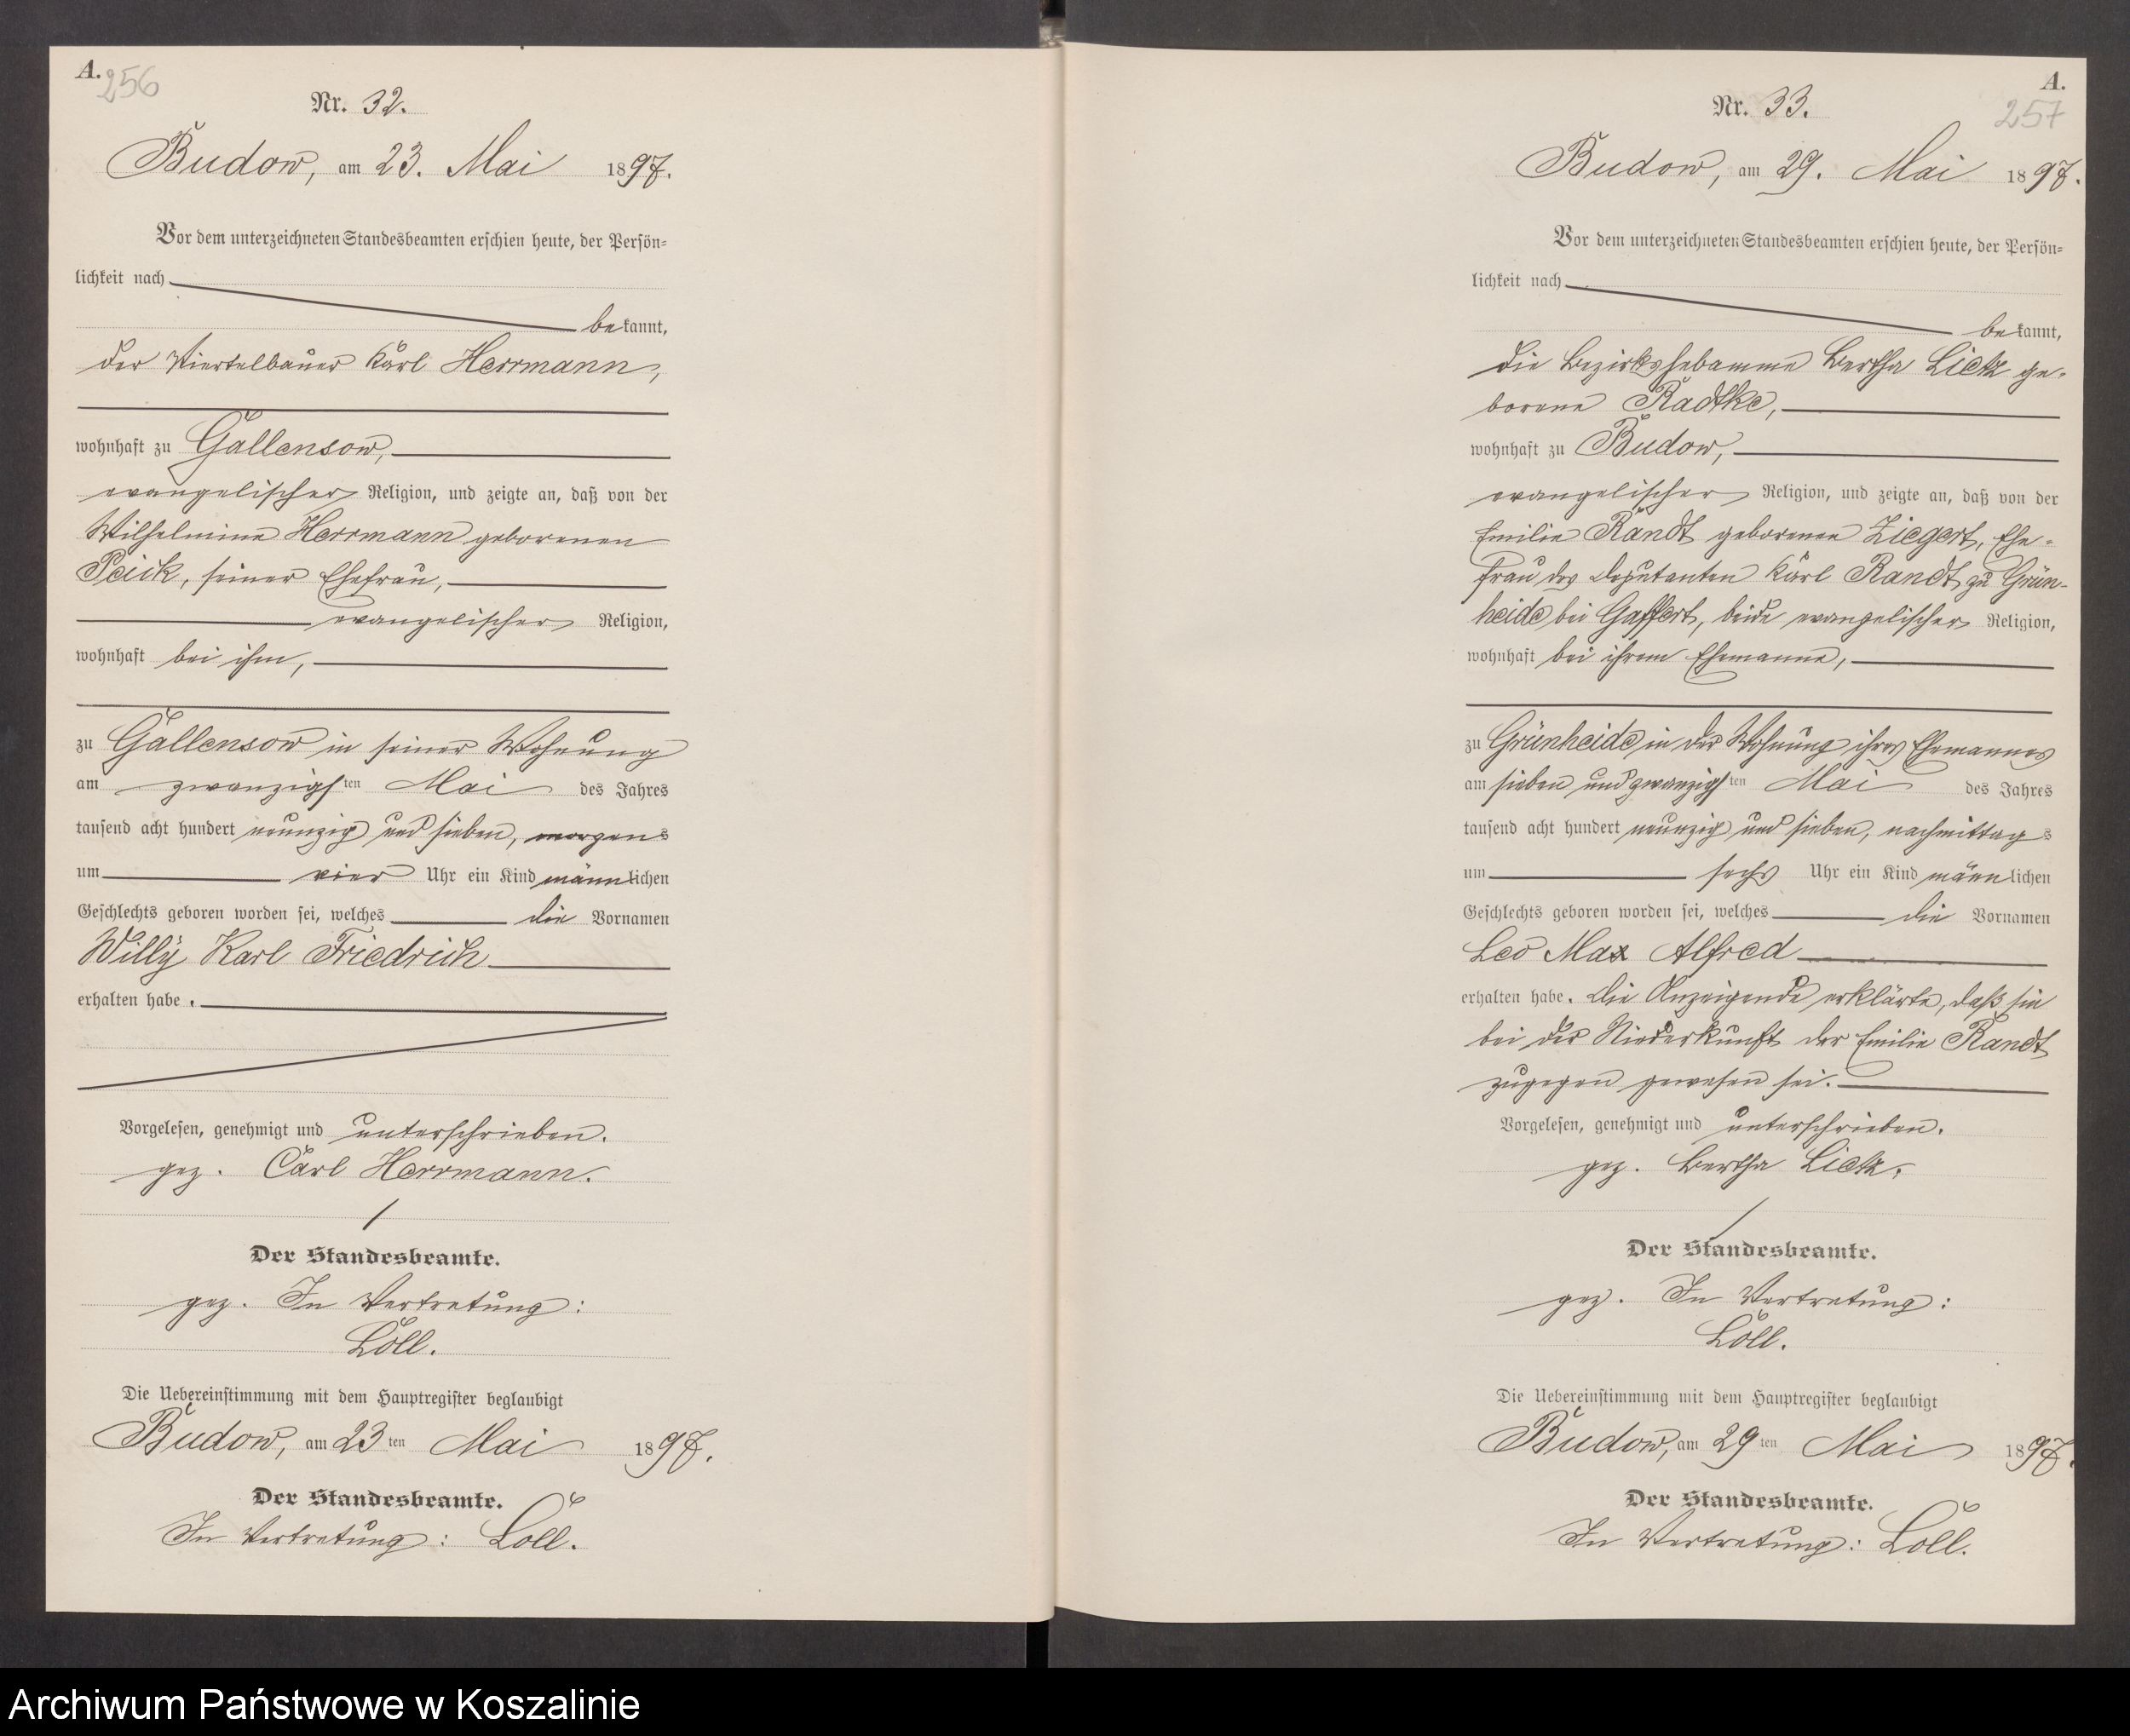 A.
256
Nr. 32.
Budow, am 23. Mai 1897.
Vor dem unterzeichneten Standesbeamten erschien heute, der Persön-
lichkeit nach
bekannt,
der Viertelbauer Karl Herrmann,
wohnhaft zu Gallensow,
evangelischer Religion, und zeigte an, daß von der
Wilhelmine Herrmann geborenen
Peick, seiner Ehefrau,
evangelischer Religion,
wohnhaft bei ihm,
zu Gallensow in seiner Wohnung
am zwanzigsten Mai des Jahres
tausend acht hundert neunzig und sieben, morgens
um vier Uhr ein Kind männlichen
Geschlechts geboren worden sei, welches die Vornamen
Willy Karl Friedrich
erhalten habe.
Vorgelesen, genehmigt und unterschrieben.
gez. Carl Herrmann.
Der Standesbeamte.
gez. In Vertretung:
Loll.
Die Uebereinstimmung mit dem Hauptregister beglaubigt
Budow, am 23ten Mai 1897.
Der Standesbeamte.
In Vertretung: Loll.
A.
257
Nr. 33.
Budow, am 29. Mai 1897.
Vor dem unterzeichneten Standesbeamten erschien heute, der Persön-
lichkeit nach
bekannt,
die Bezirkshebamme Bertha Lietz ge-
borene Radtke,
wohnhaft zu Budow,
evangelischer Religion, und zeigte an, daß von der
Emilie Randt geborenen Ziegert, Ehe-
frau des Deputanten Karl Randt zu Grün-
heide bei Gaffert, beide evangelischer Religion,
wohnhaft bei ihrem Ehemanne,
zu Grünheide in der Wohnung ihres Ehemannes
am sieben und zwanzigsten Mai des Jahres
tausend acht hundert neunzig und sieben, nachmittags
um sechs Uhr ein Kind männlichen
Geschlechts geboren worden sei, welches die Vornamen
Leo Max Alfred
erhalten habe. Die Anzeigende erklärte, daß sie
bei der Niederkunft der Emilie Randt
zugegen gewesen sei.
Vorgelesen, genehmigt und unterschrieben.
gez. Bertha Lietz.
Der Standesbeamte.
gez. In Vertretung:
Loll.
Die Uebereinstimmung mit dem Hauptregister beglaubigt
Budow, am 29ten Mai 1897.
Der Standesbeamte.
In Vertretung: Loll.
Archiwum Państwowe w Koszalinie